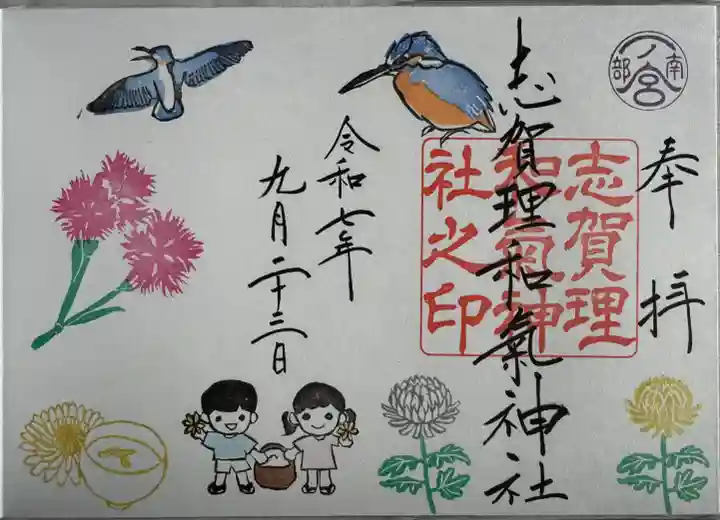 南部一ノ宮
奉拝
志賀理和氣神社
志賀理
和氣神
社之印
令和七年
九月二十三日